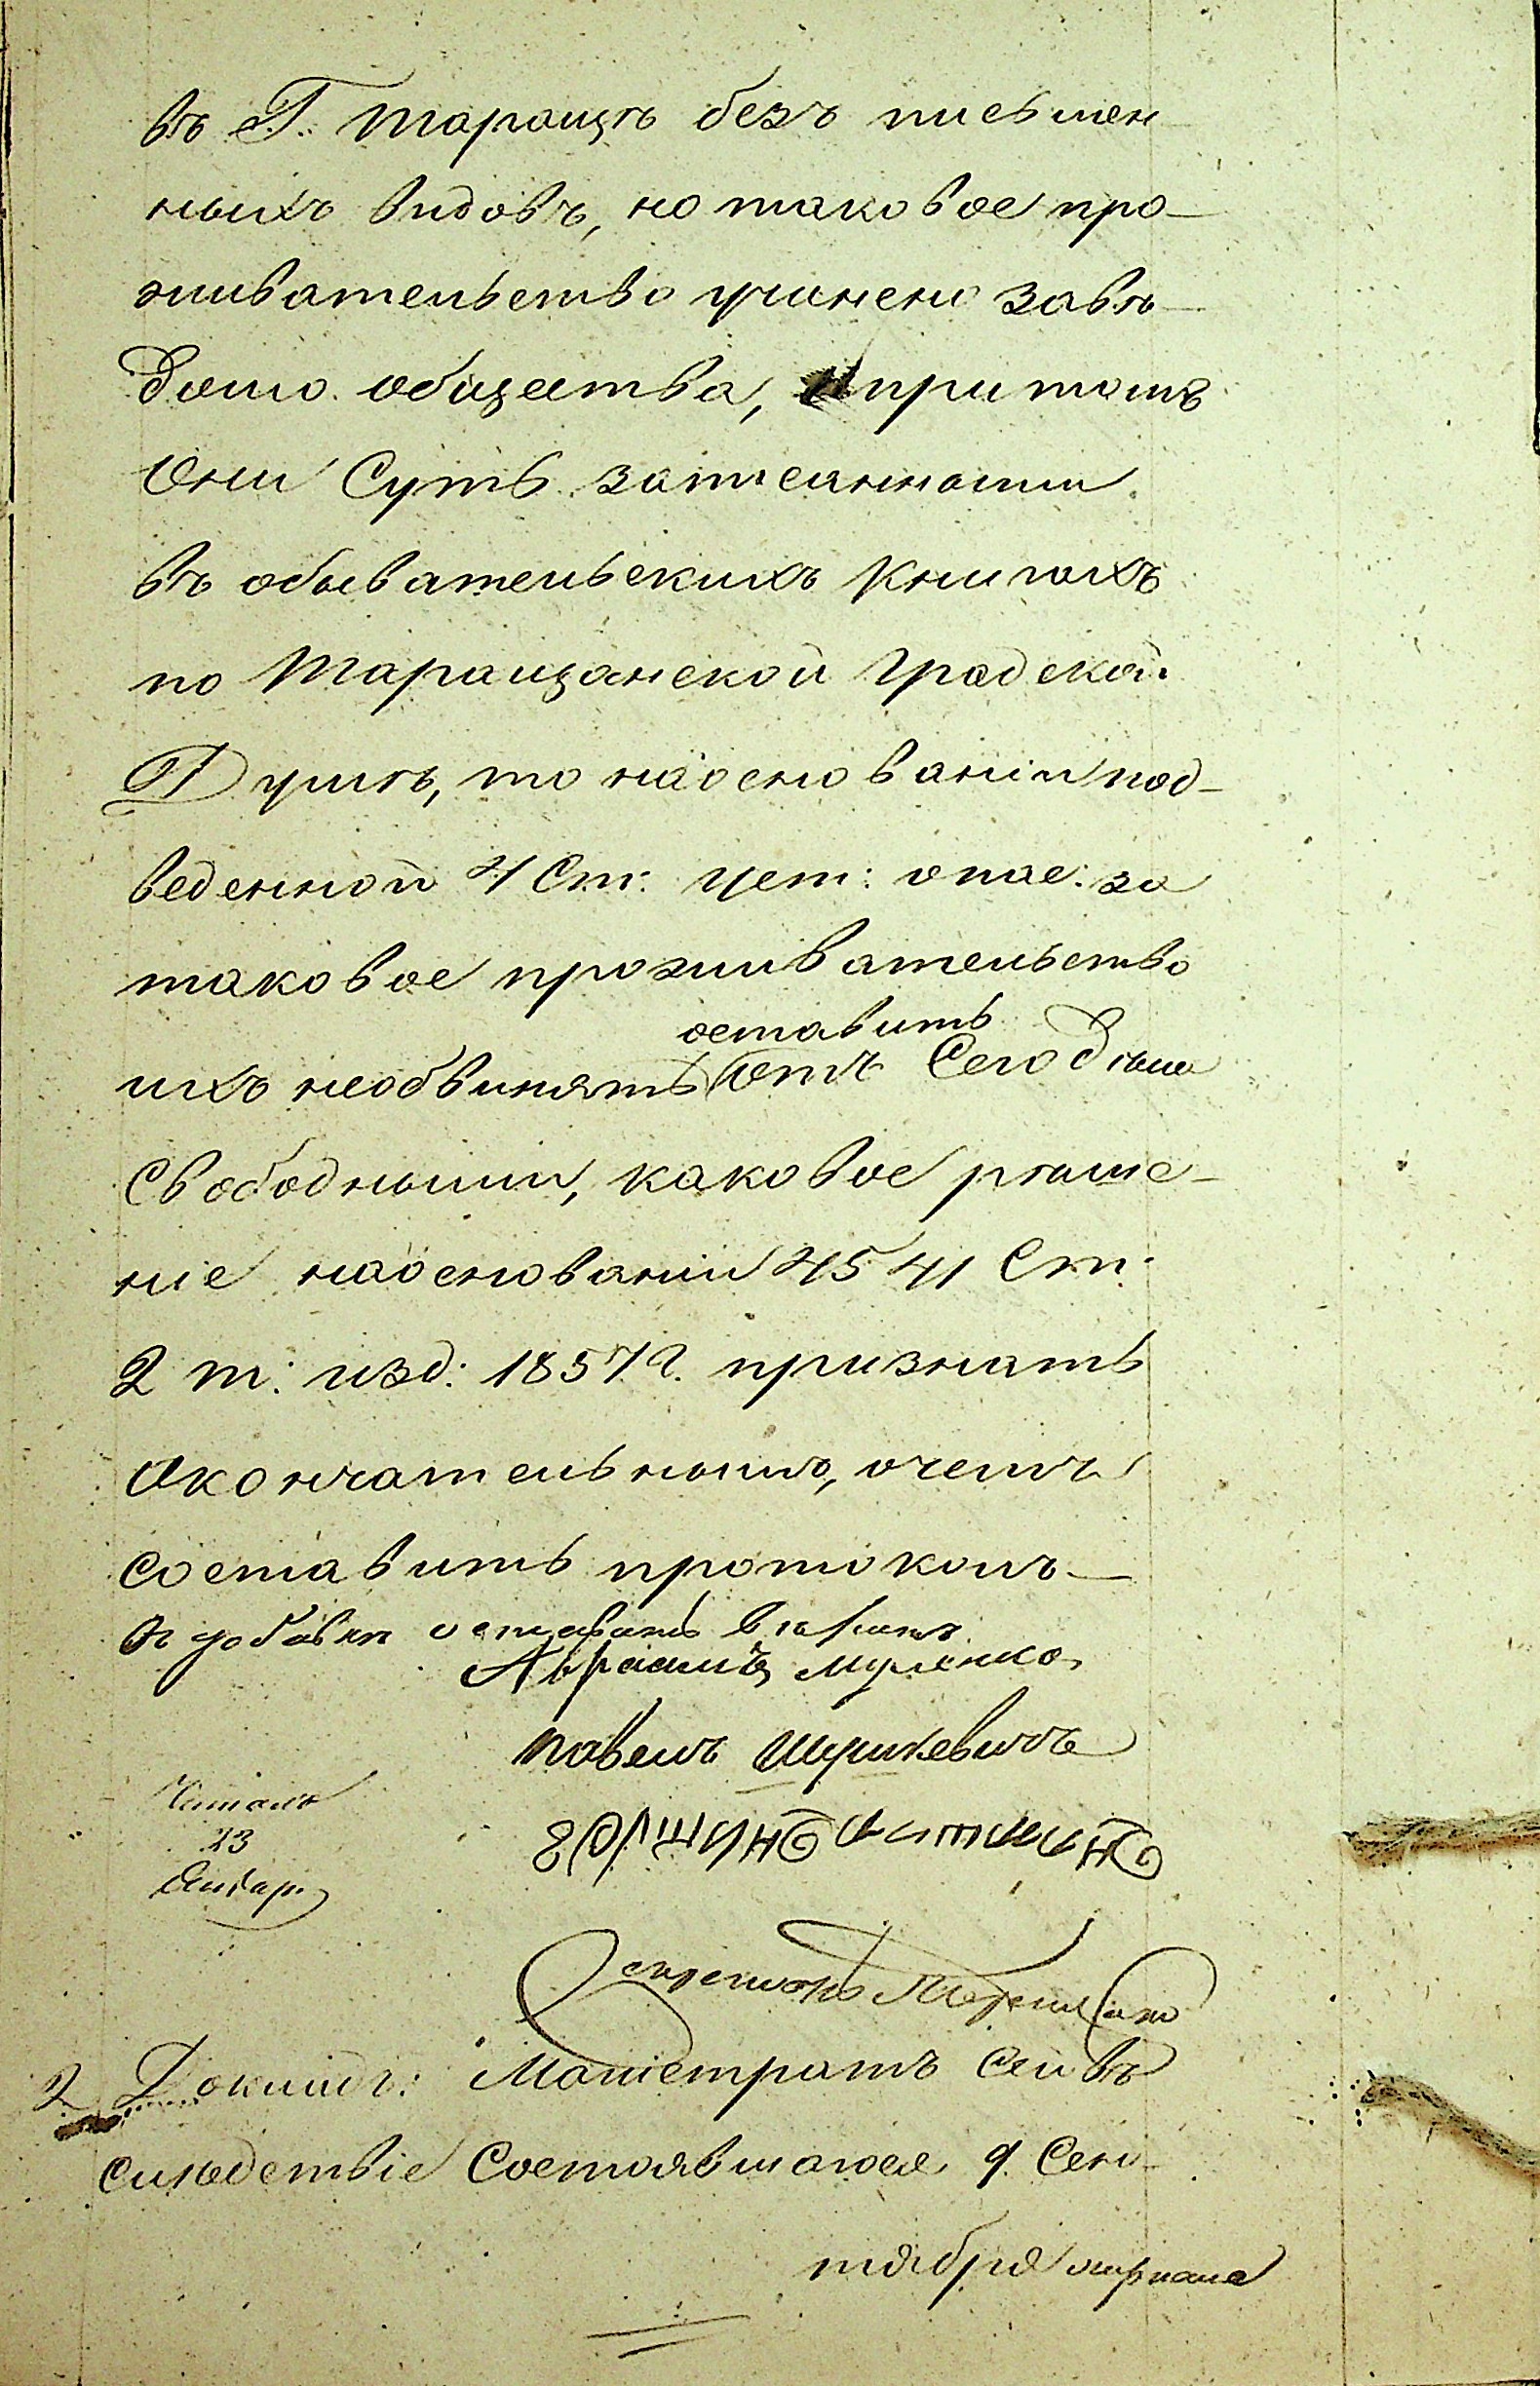 въ Г. Таращѣ безъ письмен
ныхъ видовъ, но таковое про-
живательство учинено завѣ-
домо общества, и при томъ
они суть записанными
въ обывательскихъ книгахъ
по Таращанской Градской
Думѣ, то на основаніи под-
веденной 4 Ст: Уст: о пас: за
таковое проживательство
оставить
ихъ необвинять отъ Сего дѣла
Свободными, каковое рѣше-
ніе на основаніи 4541 Ст:
2 т: изд: 1857 г. признать
окончательнымъ, о чемъ
составить протоколъ —
Съ добавки оставить вѣрить
Авраамъ
Павелъ Шушкевичъ
Читалъ
23
Январ.
Секретарь
2 Докладъ: Магистратъ сей въ
слѣдствіе состоявшагося 9 Сен-
тября журнала